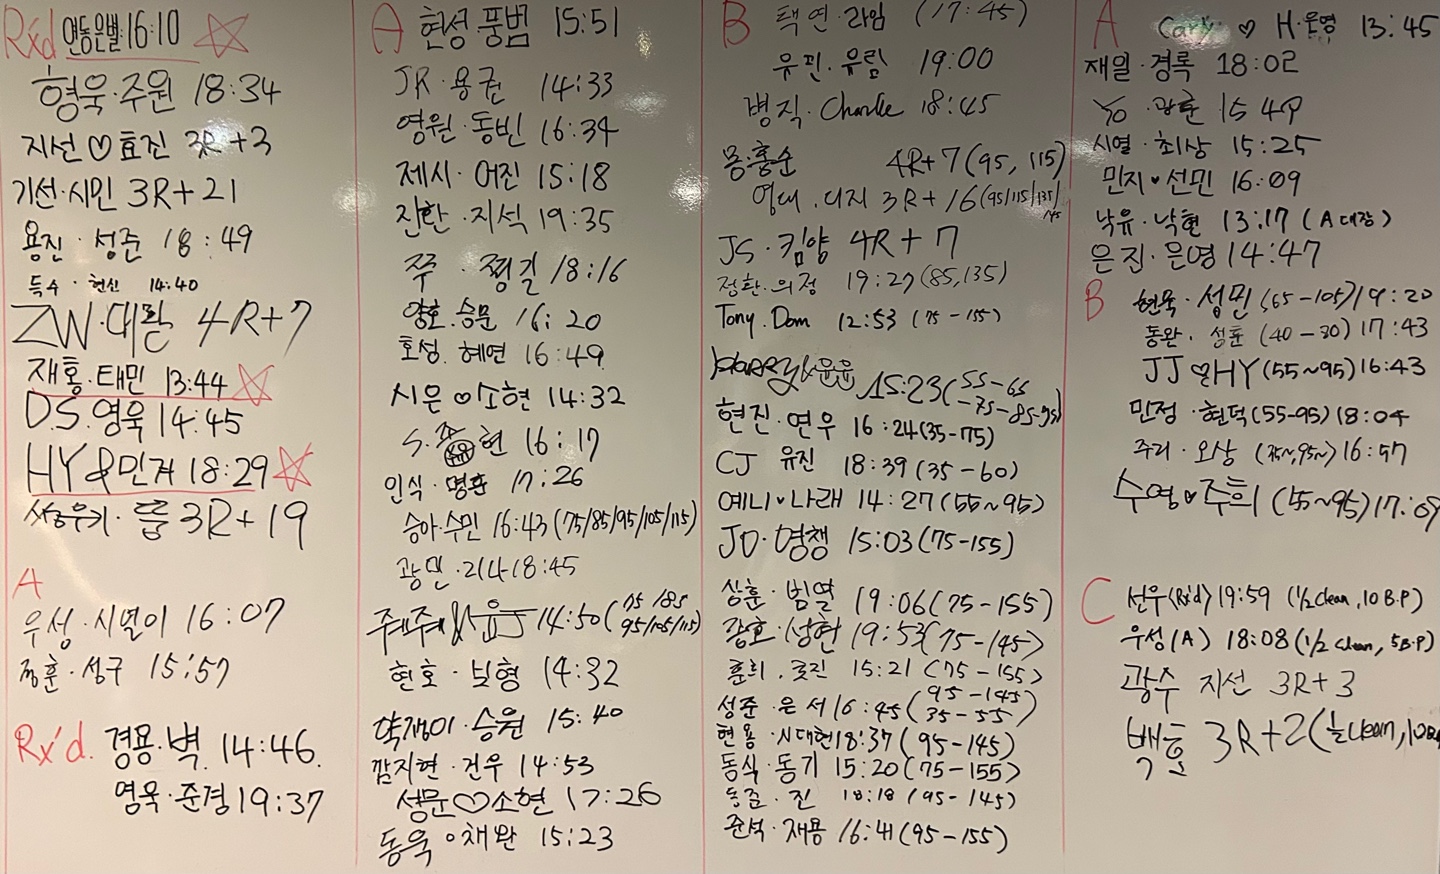 Rx'd 연동은별 16:10
형욱·주원 18:34
지선♡효진 3R+3
기선·시민 3R+21
용진·성준 18:49
득수·현신 14:40
ZW·대환 4R+7
재홍·태민 13:44
D.S.영욱 14:45
HY&민겨 18:29
3R+19
A
우성·시열이 16:07
정훈·성구 15:57
Rx'd. 경용·벽 14:46.
영욱·준경 19:37
A 현성 풍범 15:51
JR·용권 14:33
영원·동빈 16:34
제시·어진 15:18
진환·지석 19:35
쭈·쩡길 18:16
양호·승문 16:20
호성·혜연 16:49
시은♡소현 14:32
S·현 16:17
인식·명훈 17:26
승아·수민 16:43(75/85/95/105/115)
광민·리나 18:45
쥬쥬& 14:50(75/85 95/105/115)
현호·보형 14:32
약쟁이·승원 15:40
깜지현·건우 14:53
성문♡소현 17:26
동욱·채완 15:23
B 택연·라임 (17:45)
유핀·유림 19:00
병직·Charlie 18:45
몽·홍순 4R+7(95, 115)
영대·디지 3R+16(95/115/135/145
JS·킴양 4R+7
정환·의정 19:27(85,135)
Tony·Dom 12:53 (75-155)
Harry&윤윤 15:23(55-65-75-85-95)
현진·연우 16:24(35-75)
CJ 유진 18:39(35-60)
예니♥나래 14:27(55~95)
JD·명챙 15:03(75-155)
상훈·범열 19:06(75-155)
광호·성현 19:53(75-145)
훈희·효진 15:21(75-155)
성준·은서 16:45(95-145 35-55)
현용·시대현 18:37(95-145)
동식·동기 15:20(75-155)
동준·진 18:18(95-145)
준석·재용 16:41(95-155)
A Cary♡H·은영 13:45
재일·경록 18:02
Yo·광훈 15 49
시열·최상 15:25
민지♥선민 16:09
낙유·낙현 13:17(A대장)
은진·은영 14:47
B 현욱·성민(65-105)19:20
동완·성훈(40-80)17:43
JJ♡HY(55~95)16:43
민정·현덕(55-95)18:04
주리·오상(75~,95~)16:57
수영♥주희(55~95)17:09
C 선우(Rx'd)19:59(1/2clean,10B.P)
우성(A) 18:08(1/2 clean, 5B.P)
광수 지선 3R+3
백호 3R+2(1/2clean,10B.